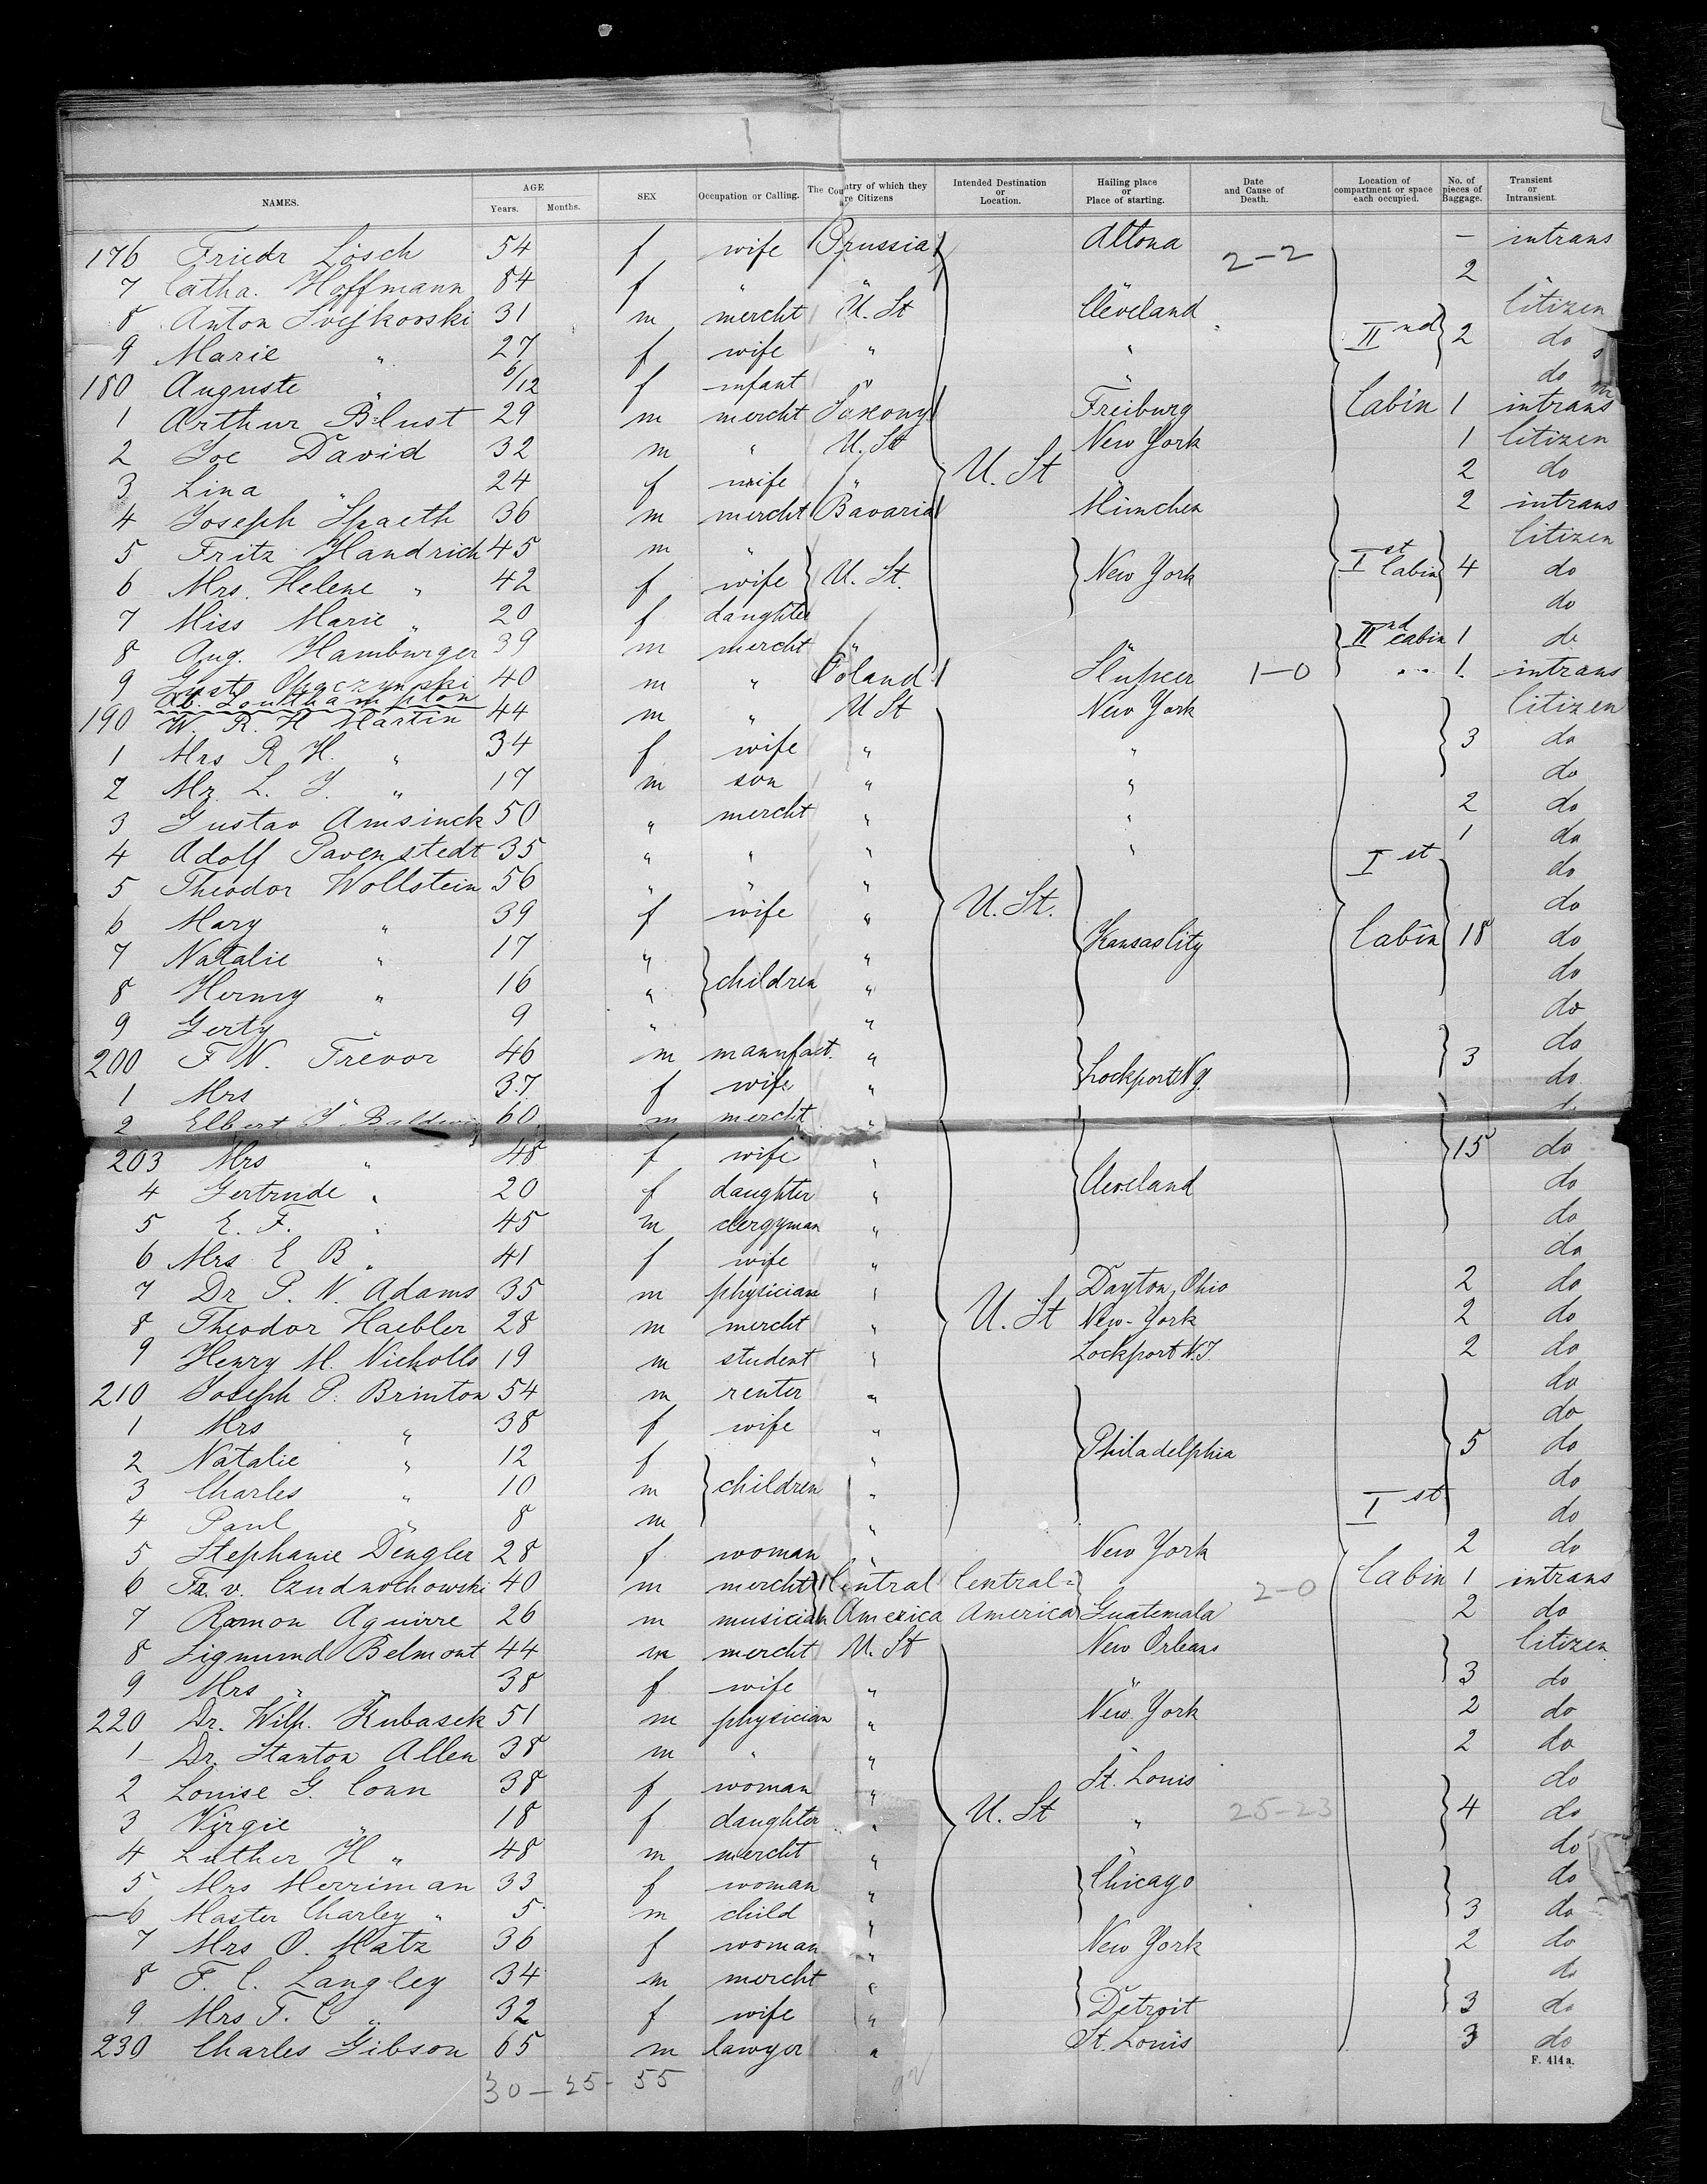 NAMES. AGE Years. Months. SEX Occupation or Calling. The Country of which they are Citizens Intended Destination or Location. Hailing place or Place of starting. Date and Cause of Death. Location of compartment or space each occupied. No. of pieces of Baggage. Transient or Intransient.
176 Friedr Lösch 54 f wife Prussia Altona 2-2 - intrans
7 Catha. Hoffmann 84 f " " " 2
8 Anton 31 m mercht U. St Cleveland Citizen
9 Marie " 27 f wife " " IInd 2 do
180 Auguste " 6/12 f infant " " do
1 Arthur Blust 29 m mercht Saxony Freiburg Cabin 1 intrans
2 Joe David 32 m " U. St New York 1 Citizen
3 Lina " 24 f wife " U. St " 2 do
4 Joseph Spaeth 36 m mercht Bavaria München 2 intrans
5 Fritz Handrich 45 m " Citizen
6 Mrs. Helene " 42 f wife U. St. New York Ist Cabin 4 do
7 Miss Marie " 20 f daughter do
8 Aug. Hamburger 39 m mercht " " IInd cabin 1 do
9 40 m " Poland 1-0 " 1. intrans
Ab. Southampton
190 W. R. H Martin 44 m " U St New York Citizen
1 Mrs R H. " 34 f wife " " 3 do
2 Mr. L. J. " 17 m son " " do
3 Gustav Amsinck 50 " mercht " " 2 do
4 Adolf Pavenstedt 35 " " " " 1 do
5 Theodor Wollstein 56 " " " Ist do
6 Mary " 39 f wife " U. St. do
7 Natalie " 17 " children " Kansas City Cabin 18 do
8 Henny " 16 " " do
9 Gerty " 9 " " do
200 F N. Trevor 46 m manufact. " 3 do
1 Mrs 37 f wife " Lockport Ny. do
2 Elbert J Baldwin 60 m mercht "
203 Mrs " 48 f wife " 15 do
4 Gertrude " 20 f daughter " Cleveland do
5 E. F. " 45 m clergyman " do
6 Mrs E B " 41 f wife " do
7 Dr P. N. Adams 35 m physician " Dayton, Ohio 2 do
8 Theodor Haebler 28 m mercht " U. St New-York 2 do
9 Henry M. Nicholls 19 m student " Lockport N.J. 2 do
210 Joseph P. Brinton 54 m renter " do
1 Mrs " 38 f wife " do
2 Natalie " 12 f " Philadelphia 5 do
3 Charles " 10 m children " do
4 Paul " 8 m " Ist do
5 Stephanie Dengler 28 f woman " New York 2 do
6 Fr. v. Czudnochowski 40 m mercht Central Central= 2-0 Cabin 1 intrans
7 Ramon Aguirre 26 m musician America America Guatemala 2 do
8 Sigmund Belmont 44 m mercht U. St New Orleans Citizen
9 Mrs " " 38 f wife " " 3 do
220 Dr. Wilh. Kubasek 51 m physician " New York 2 do
1 Dr. Stanton Allen 38 m " " " 2 do
2 Louise G. Conn 38 f woman " St. Louis do
3 Virgie " 18 f daughter " U. St " 25-23 4 do
4 Luther H " 48 m mercht " " do
5 Mrs Merriman 33 f woman " Chicago do
6 Master Charley " 5 m child " 3 do
7 Mrs O. Matz 36 f woman " New York 2 do
8 F. C. Langley 34 m mercht " do
9 Mrs F. C " 32 f wife " Detroit 3 do
230 Charles Gibson 65 m lawyer " St. Louis 3 do
F. 414 a.
30 - 25 - 55